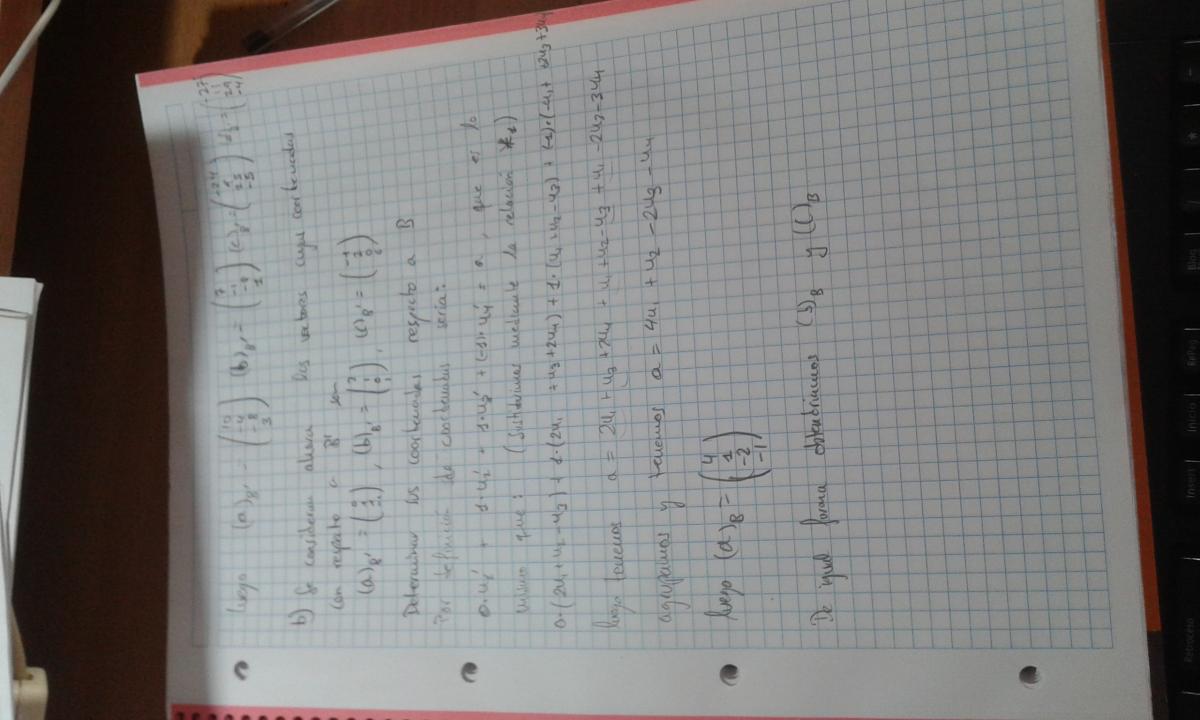 luego (a)B' = (10 -4 -8 3) (b)B' = (7 -1 1) (c)B' = (-24 25 -5) = (-27 11 29 -4)
b) Se consideran ahora los vectores cuyas coordenadas
con respecto a B' son
(a)B' = (0 1 1 -1), (b)B' = (1 0 1), (c)B' = (-1 2 0 0)
Determinar las coordenadas respecto a B
Por definición de coordenadas sería:
0·u1' + 1·u2' + 1·u3' + (-1)·u4' = a, que es lo
mismo que: (Sustituimos mediante la relación *1)
0·(2u1+u2-u3) + 1·(2u1 + u3+2u4) + 1·(u1+u2-u3) + (-1)·(-u1+ +2u3+3u4
luego tenemos a = 2u1+u3+2u4 + u1+u2-u3 +u1 -2u3-3u4
agrupamos y tenemos a = 4u1 + u2 - 2u3 - u4
luego (a)B = (4 1 -2 -1)
De igual forma obtendríamos (b)B y (c)B